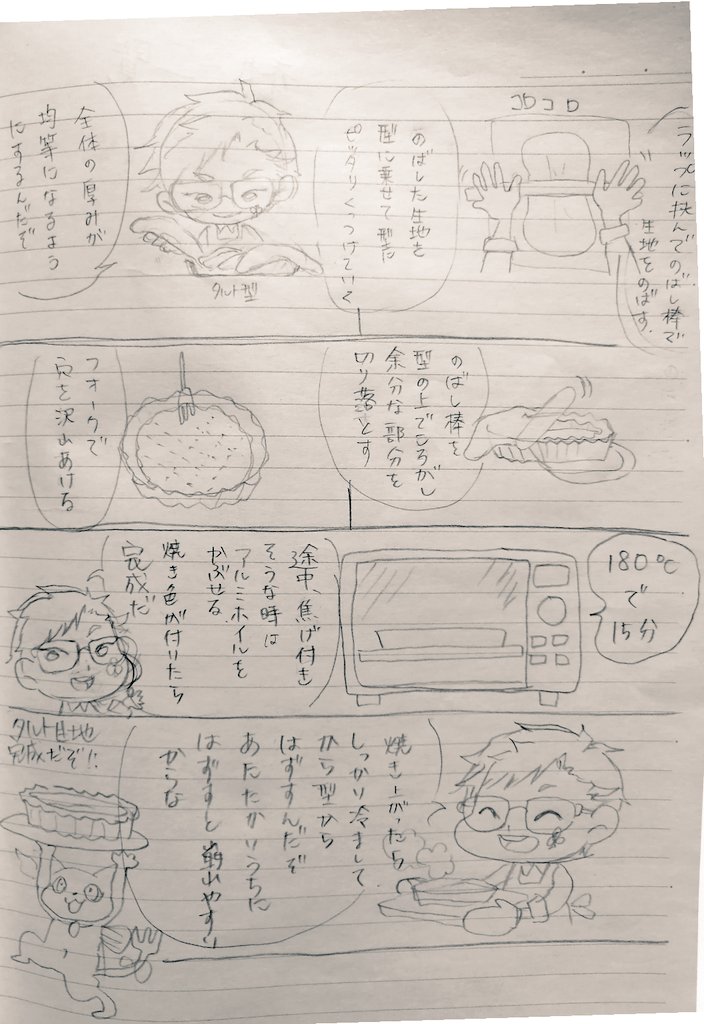 ラップに挟んでのばし棒で
生地をのばす.
コロコロ
のばした生地を
型に乗せて型に
ピッタリくっつけていく
タルト型
全体の厚みが
均等になるよう
にするんだぞ
のばし棒を
型の上でころがし
余分な部分を
切り落とす
フォークで
穴を沢山あける
180℃
で
15分
途中、焦げ付き
そうな時は
アルミホイルを
かぶせる
焼き色が付いたら
完成だ
焼き上がったら
しっかり冷まして
から型から
はずすんだぞ
あたたかいうちに
はずすと崩れやすい
からな
タルト生地
完成だぞ!!